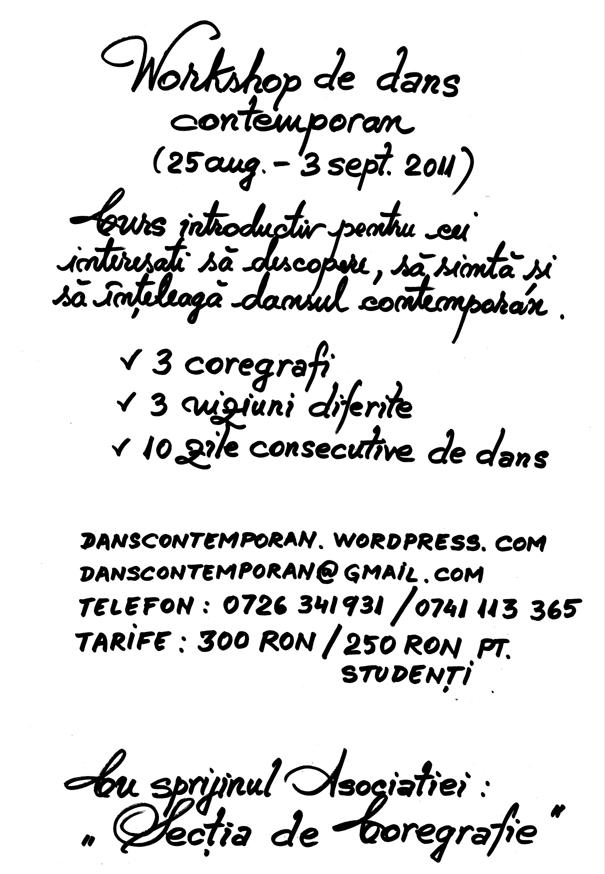 Workshop de dans
contemporan
(25 aug. - 3 sept. 2011)
Curs introductiv pentru cei
interesati să descopere, să simtă și
să înțeleagă dansul contemporan.
✓ 3 coregrafi
✓ 3 viziuni diferite
✓ 10 zile consecutive de dans
DANSCONTEMPORAN. WORDPRESS. COM
DANSCONTEMPORAN@GMAIL.COM
TELEFON : 0726 341931 / 0741 113 365
TARIFE : 300 RON / 250 RON PT.
STUDENȚI
Cu sprijinul Asociatiei :
„ Secția de Coregrafie "